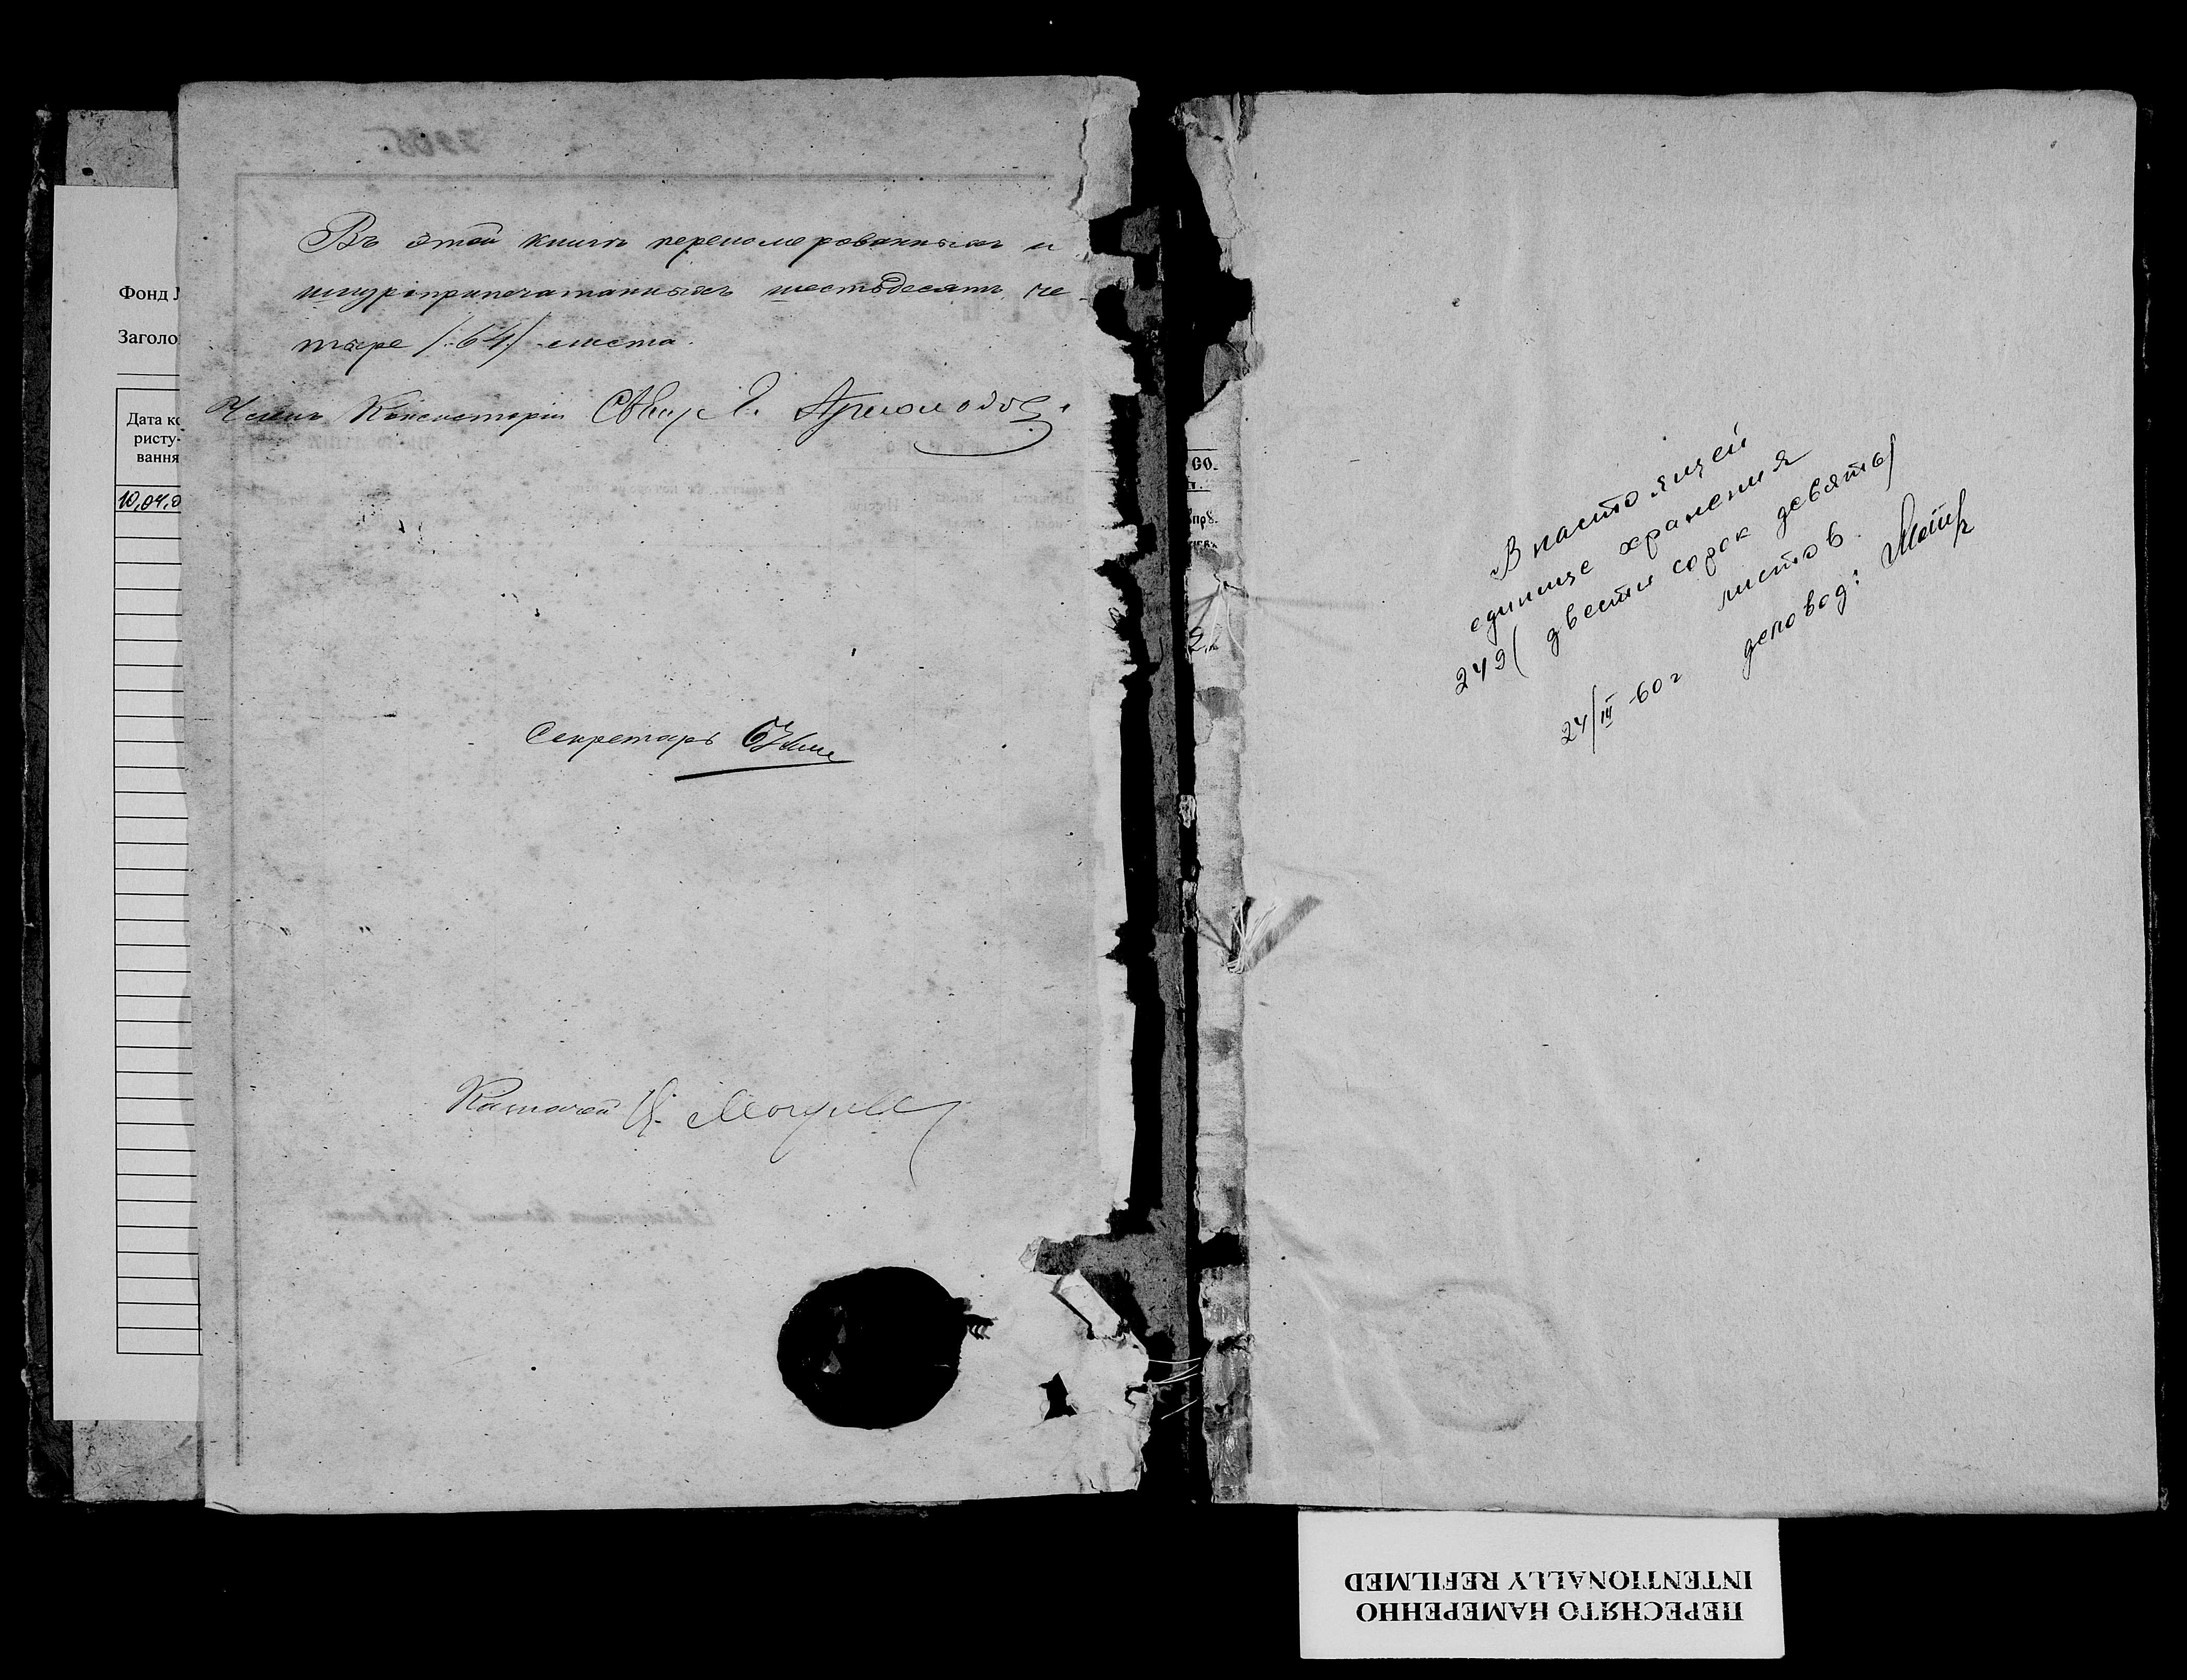 Фонд
Заголо
Дата ко
ристу-
вання
10.04.0
Въ этой книгѣ переномерованныхъ и
шнуроприпечатанныхъ шестьдесятъ че
тыре /:64:/ листа.
Членъ Консисторіи
Секретарь
Казначей
В настоящей
единице хранения
249 (двести сорок девять)
листов.
24/III-60 г деловод:
ПЕРЕСНЯТО НАМЕРЕННО
INTENTIONALLY REFILMED